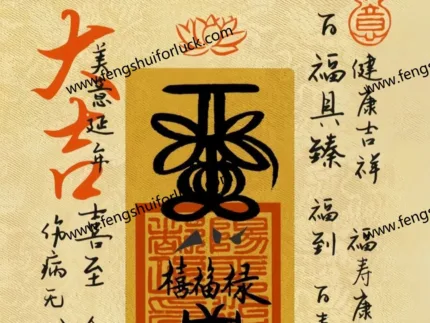 健康吉祥 福寿康
百福具臻 福到 百
禧福禄
美意延年 喜至
大吉
伤病无
www.fengshuiforluck.com
www.fengshuiforluck.com
www.fengshuiforluck.com